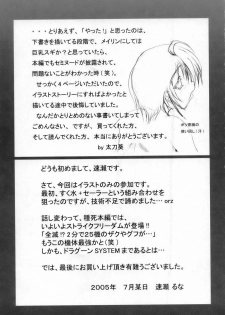 ・・・とりあえず、「やった！」と思ったのは、
下書きを描いてる段階で、メイリンにしては
巨乳スギかも？と思ったのですが、
本編でもセミヌードが披露されて、
問題ないことがわかった時（笑）。
せっかく４ページいただいたので、
イラストストーリーにすればよかったな～
と描いてる途中で後悔していました。
なんだかとりとめのない事書いてしまって
ごめんなさい。ですが、買ってくれた方、
そして読んでくれた方、本当にありがとうございます。
by 太刀葵
どうも初めまして、速瀬です。
さて、今回はイラストのみの参加です。
当初、すく水＋セーラーという組み合わせを
狙ったのですが、技術不足で諦めました…orz
話し変わって、種死本編では、
いよいよストライクフリーダムが登場!!
「全滅!?２分で25機のザクやグフが…」
もうこの機体最強かと（笑）
しかも、ドラグーンSYSTEMまであるとは…
では、最後にお買い上げ頂き有難うございました。
2005年　７月某日　速瀬 るな